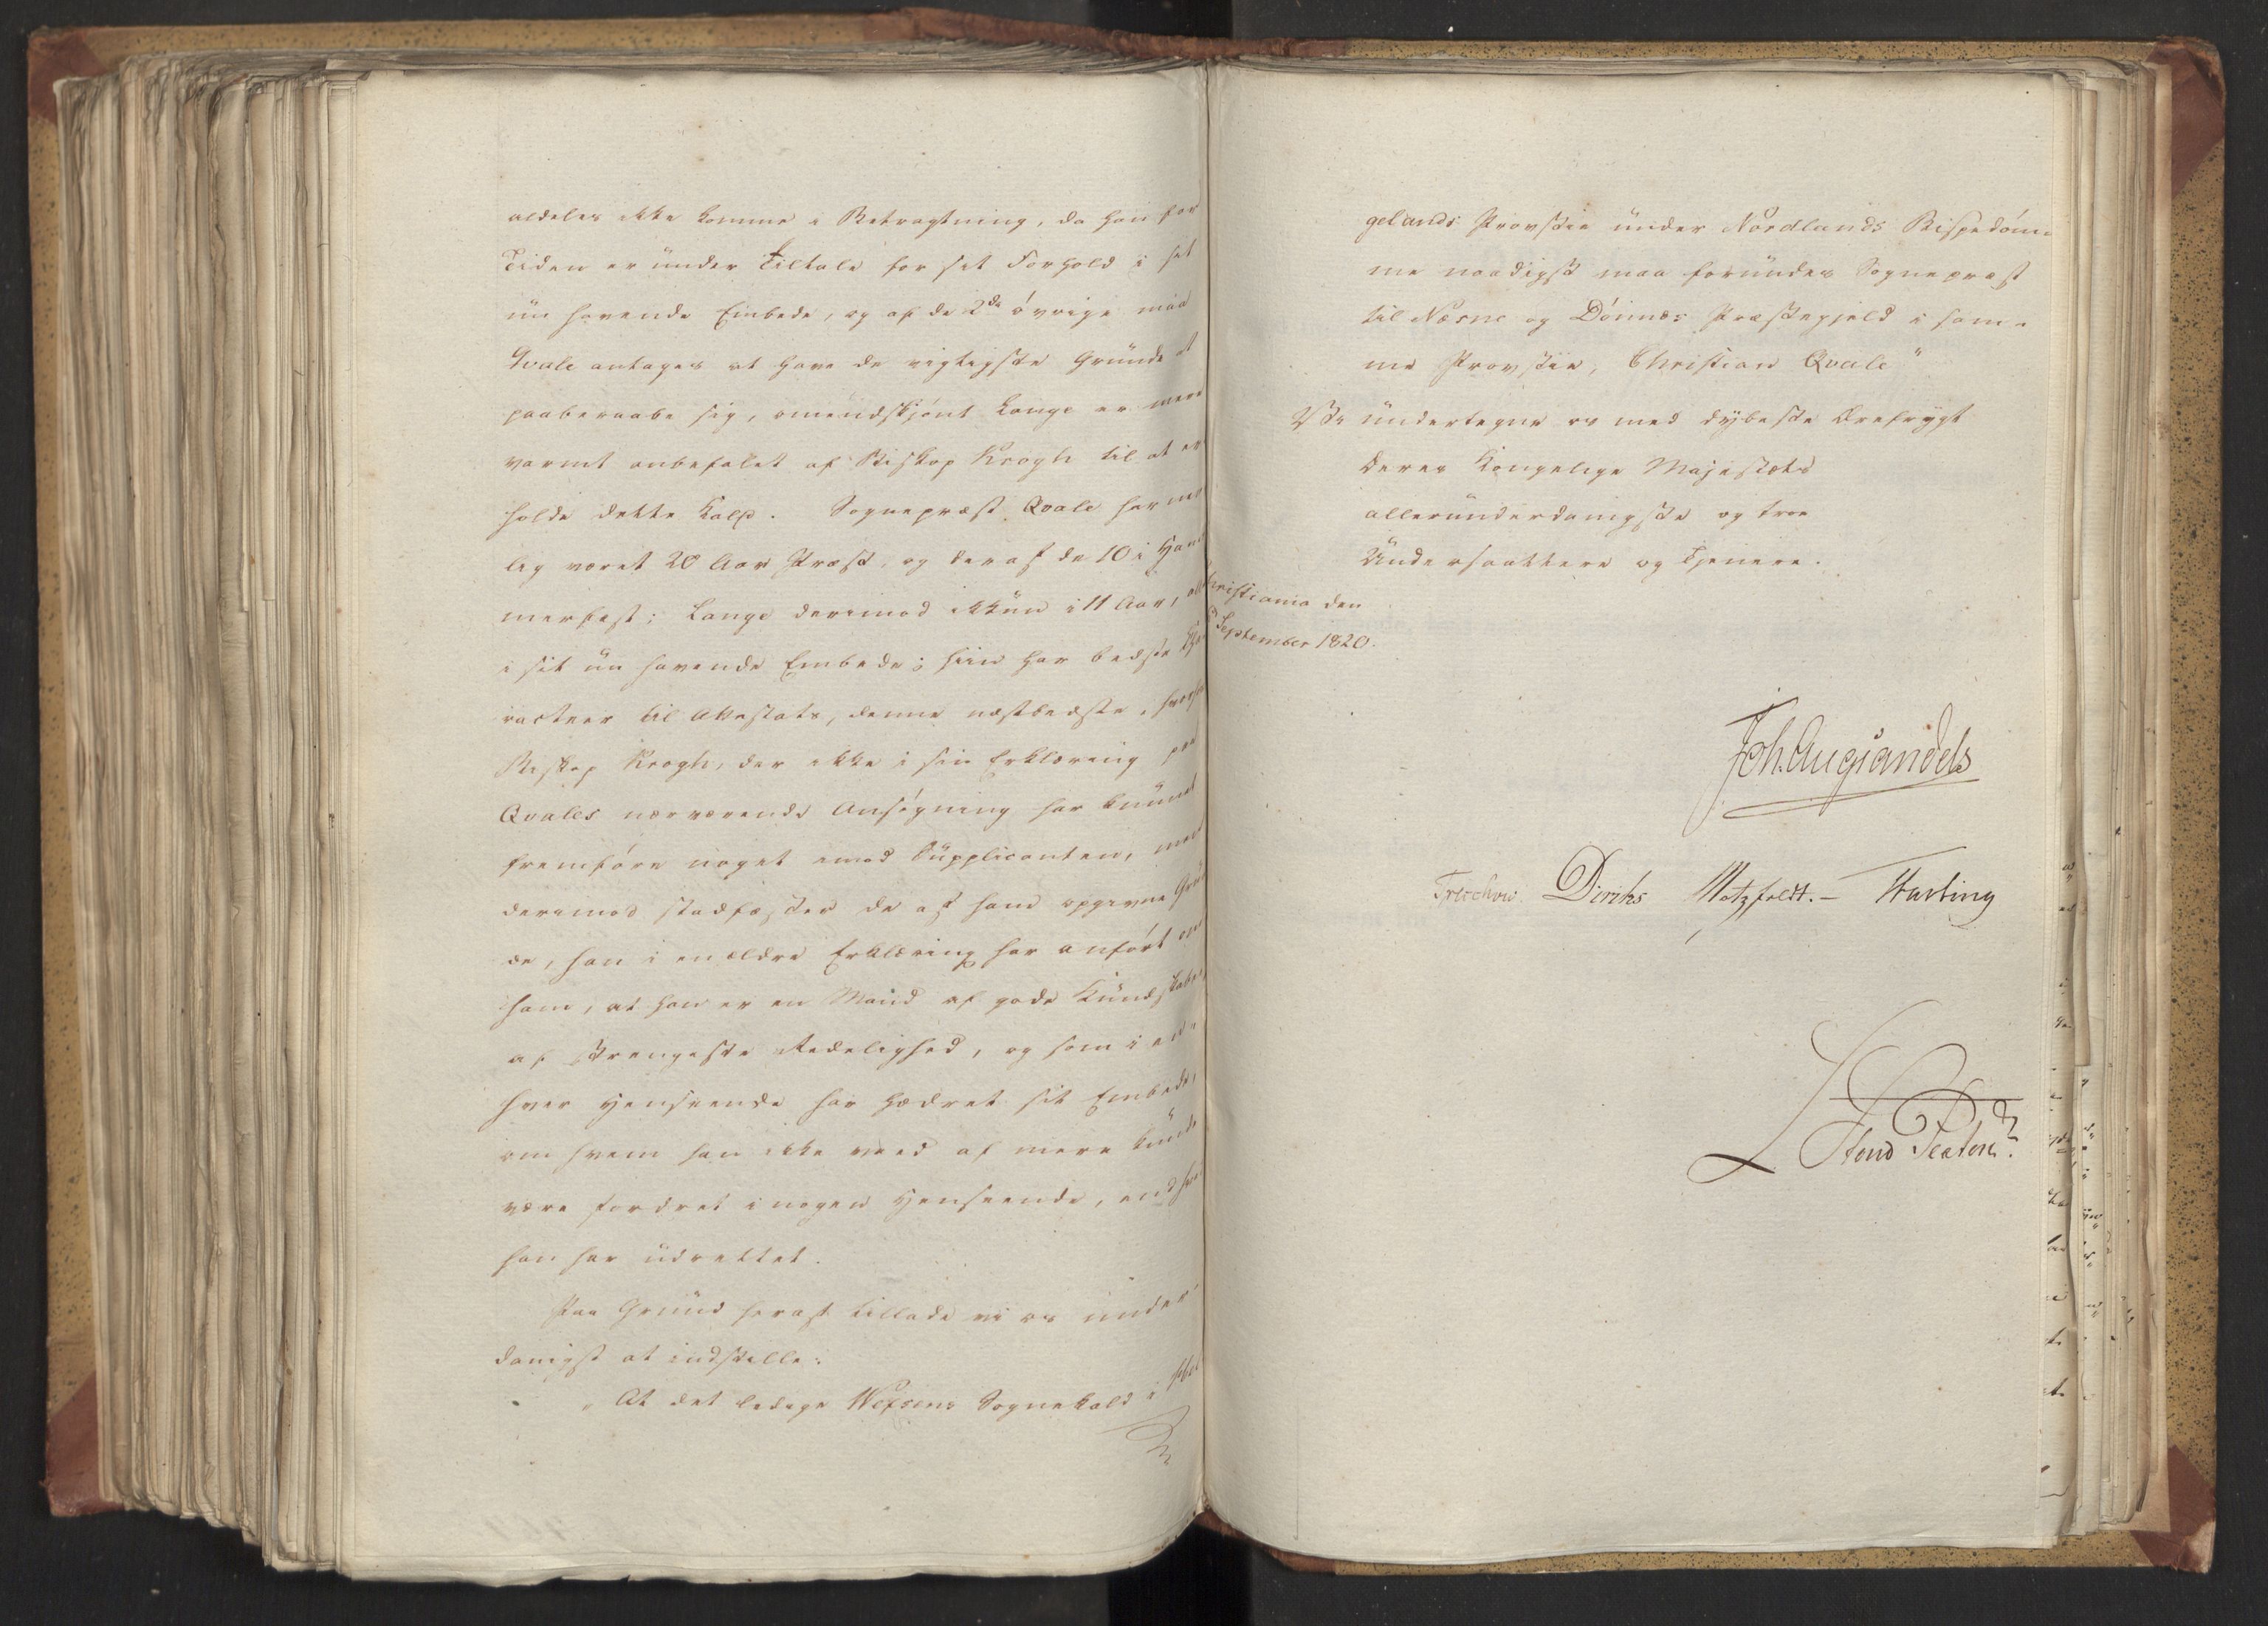 aldeles ikke komme i Betragtning, da han for
Tiden er under Tiltale for sit Forhold i sit
nu havende Embede, og af de 2de øvrige maa
Qvale antages at have de vigtigste Grunde at
paaberaabe sig, omendskjönt Lange er mere
varmt anbefalet af Biskop Krogh til at er
holde dette Kald. Sognepræst Qvale har nem
lig været 20 Aar Præst, og deraf de 10 i Ham
merfest; Lange derimod ikkun i 11 Aar, alle
i sit nu havende Embede; hiin har bedste Cha
racteer til Attestats, denne næstbedste,
Biskop Krogh, der ikke i sin Erklæring paa
Qvales nærværende Ansögning har kunnet
fremföre noget imod Supplicanten, men
derimod stadfæster de af ham opgivne Grun
de, han i en ældre Erklæring har anfört om
ham, at han er en Mand af gode Kundskaber,
af strengeste Redelighed, og som i en
hver Henseende har hædret sit Embede,
om hvem han ikke veed af mere kunde
være fordret i nogen Henseende, end hvad
han har udrettet.
Paa Grund heraf tillade vi os under
danigst at indstille:
"At det ledige Wefsens Sognekald i Hel
gelands Provstie under Nordlands Bispedöm-
me naadigst maa forundes Sognepræst
til Næsne og Dönnes Præstegjeld i sam-
me Provstie, Christian Qvale"
Vi undertegne os med dybeste Ærefrygt
Deres Kongelige Majestæts
allerunderdanigste og troe
Undersaattere og Tjenere.
Christiania den
September 1820.
Joh. Aug: Sandels
Treschow Diriks Motzfeldt.- Hasting